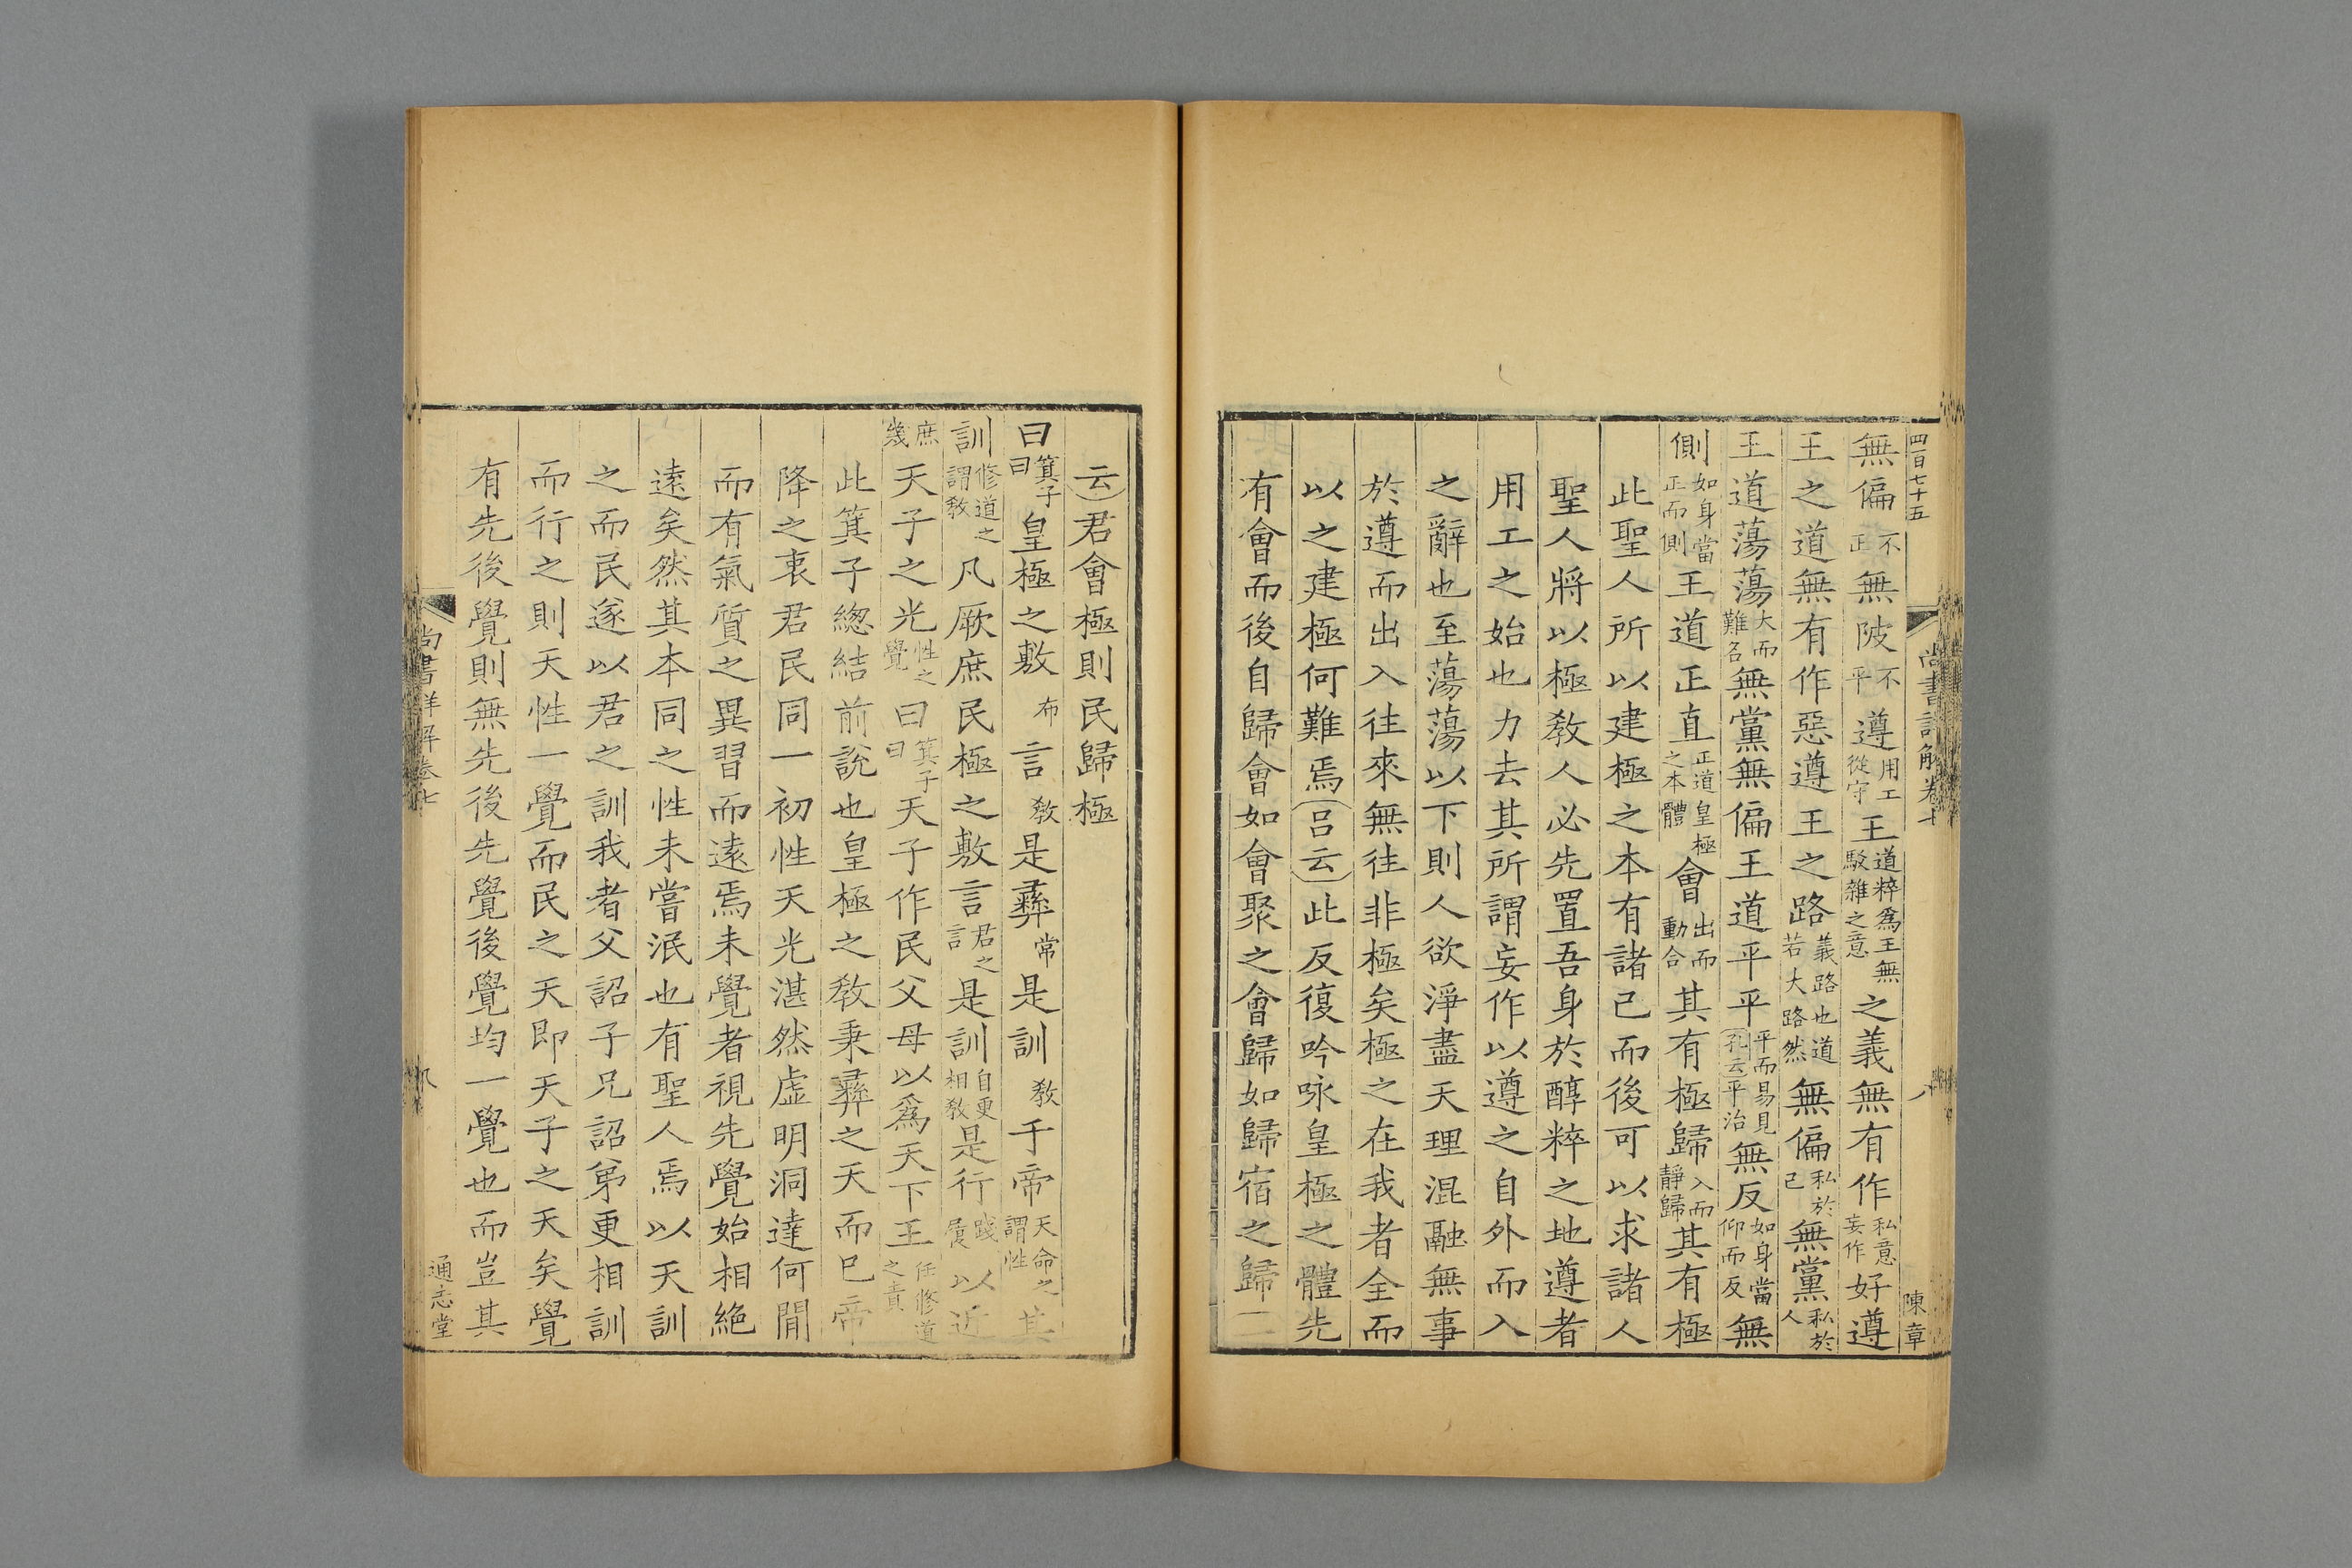 四百七十五
尚書詳解卷七
八
陳章
無偏不正無陂不平遵用工從守王道粹爲王無駁雜之意之義無有作私意妄作好遵
王之道無有作惡遵王之路義路也道若大路然無偏私於己無黨私於人
王道蕩蕩大而難名無黨無偏王道平平平而易見孔云平治無反如身當仰而反無
側如身當正而側王道正直正道皇極之本體會出而動合其有極歸入而靜歸其有極
此聖人所以建極之本有諸己而後可以求諸人
聖人將以極敎人必先置吾身於醇粹之地遵者
用工之始也力去其所謂妄作以遵之自外而入
之辭也至蕩蕩以下則人欲淨盡天理混融無事
於遵而出入往來無往非極矣極之在我者全而
以之建極何難焉呂云此反復吟咏皇極之體先
有會而後自歸會如會聚之會歸如歸宿之歸二
云君會極則民歸極
曰箕子曰皇極之敷布言敎是彝常是訓敎于帝天命之謂性其
訓修道之謂敎凡厥庶民極之敷言君之言是訓自更相敎是行踐履以近
庶幾天子之光性之覺曰箕子曰天子作民父母以爲天下王任修道之責
此箕子緫結前說也皇極之敎秉彝之天而已帝
降之衷君民同一初性天光湛然虛明洞達何閒
而有氣質之異習而遠焉未覺者視先覺始相絶
遠矣然其本同之性未嘗泯也有聖人焉以天訓
之而民遂以君之訓我者父詔子兄詔弟更相訓
而行之則天性一覺而民之天即天子之天矣覺
有先後覺則無先後先覺後覺均一覺也而豈其
尚書詳解卷七
八
通志堂